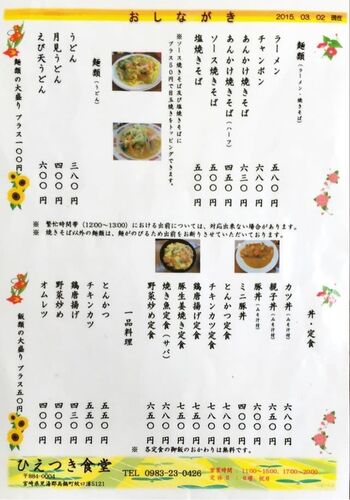 おしながき
2015. 03. 02 現在
麺類(ラーメン・焼きそば)
ラーメン 五八〇円
チャンポン 六八〇円
あんかけ焼きそば 六三〇円
あんかけ焼きそば(ハーフ) 四五〇円
ソース焼きそば 五〇〇円
塩焼きそば 五〇〇円
※ソース焼きそば及び塩焼きそばに
プラス50円で目玉焼きをトッピングできます。
麺類(うどん)
うどん 三八〇円
月見うどん 四〇〇円
えび天うどん 六〇〇円
麺類の大盛り プラス一〇〇円
※ 繁忙時間帯(12:00~13:00)における出前については、対応出来ない場合があります。
※ 焼きそば以外の麺類は、麺がのびるため出前をお断りさせていただいております。
丼・定食
カツ丼(みそ汁付) 六八〇円
親子丼(みそ汁付)
豚丼(みそ汁付)
ミニ豚丼
とんかつ定食 七八〇円
チキンカツ定食
鶏唐揚げ定食
豚生姜焼き定食
焼き魚定食(サバ)
野菜炒め定食 六五〇円
一品料理
とんかつ 五五〇円
チキンカツ 五五〇円
鶏唐揚げ 四三〇円
野菜炒め 四〇〇円
オムレツ
飯類の大盛り プラス五〇円
※ 各定食の御飯のおかわりは無料です。
ひえつき食堂
〒884-0004
TEL 0983-23-0426
営業時間・11:00~15:00、17:00~20:00
定休日・日曜、祝日